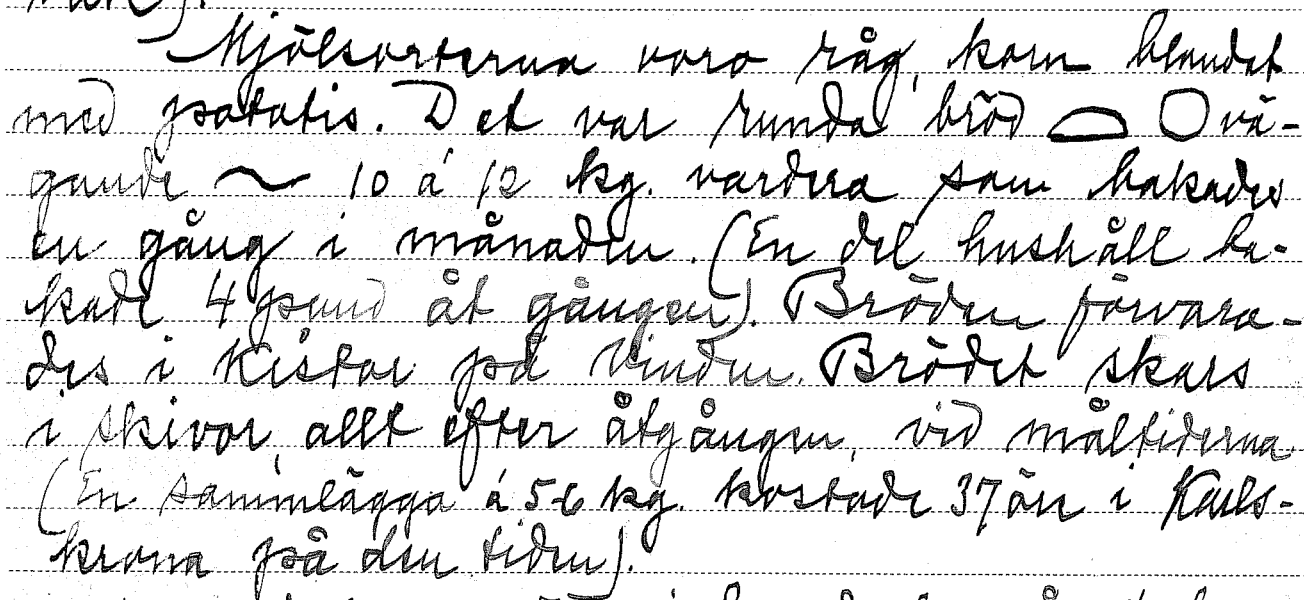 Mjölsorterna voro råg, korn blandat
med potatis. Det var runda bröd vä-
gande ~ 10 á 12 kg. vardera som bakades
en gång i månaden. (En del hushåll ba-
kade 4 pund åt gången). Bröden förvara-
des i kistor på vinden. Brödet skars
i skivor, allt efter åtgången, vid måltiderna.
(En sammlägga á 5-6 kg. kostade 37 öre i Karls-
krona på den tiden).